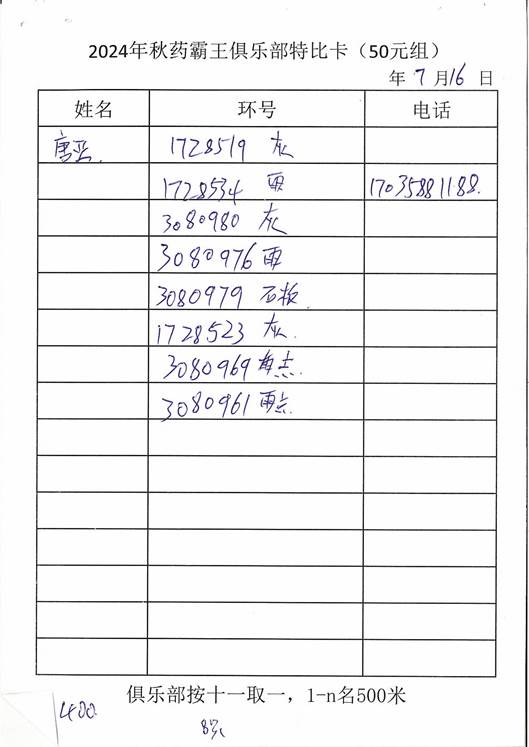 2024年秋药霸王俱乐部特比卡（50元组）
年 7 月 16 日
姓名 环号 电话
唐亚. 1728519 灰
1728534 雨 17035881188.
3080980 灰
3080976 雨
3080979 石板.
1728523 灰.
3080969 雨点.
3080961 雨点.
俱乐部按十一取一，1-n名500米
400.